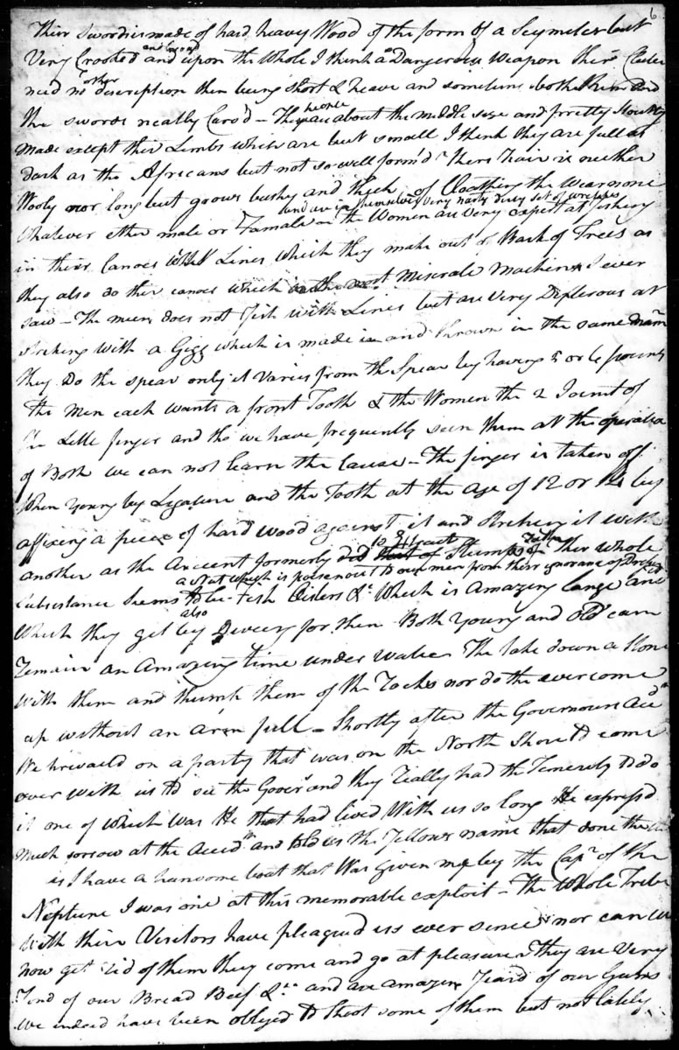 6
Their sword is made of hard heavy Wood of the form of a Seymeter but
Very Crooked and upon the Whole I think a Dangerous Weapon their Clubs
need no other description then being short & heave and sometimes both them and
the swords neatly Carv'd - The people are about the middle size and prretty Stoutly
Made except their Limbs which are but small I think they are full as
dark as the Africans but not so well form'd Theirs Hair is neither
Wooly nor long but grows bushy and thick of Cloathing the Wear none
and are in themselves Very nasty dirty set of wretches
Whatever ether male or Famale the Women are Very expert at fishing
in their Canoes With Lines Which they make out of Bark of Trees as
they also do their canoes which the most Miserale Machines I ever
saw - The men does not fish with Lines but are Very Dexterous at
striking with a Gigg which is made and thrown in the same mann
they Do the spear only it Varies from the Spear by having 3 or 4 points
The Men each wants a front Tooth & the Women the 2 Joint of
the Little finger and tho we have frequently seen them at the operation
of Both we can not learn the Cause - The finger is taken off
When Young by Ligature and the Tooth at the age of 12 or 14 by
affixing a piece of hard wood against it and strikeng it with
another as the Ancient formerly did Stumps of their whole
a Nut which is poisenous to our men from their ignorance of
Subsistance Seems to be Fish Oisters &c Which is Amazing large and
also
Which they get by Diveing for them Both Young and old can
Remain an Amazing time under Water The take down a Stone
With them and thumb them of the Rocks nor do the ever come
up without an Arm full - Shortly after the Governours Accdt
We privaild on a party that was on the North Shore to come
over with us to see the Goverr and they Really had the Temerety to do
it one of which was He that had lived With us so long He express'd
Much sorrow at the Accdt and told us the Fellows name that done the
is I have a hansome boat that Was given me by the Capn of the
Neptune I was one at this memorable exploit - The Whole Tribe
With their Visitors have pleagued us ever since nor can we
now get rid of them they come and go at pleasure They are Very
Fond of our Bread Beef &c and are amazeing Feard of our Guns
We indeed have been obliged to Shoot some of them but not lately